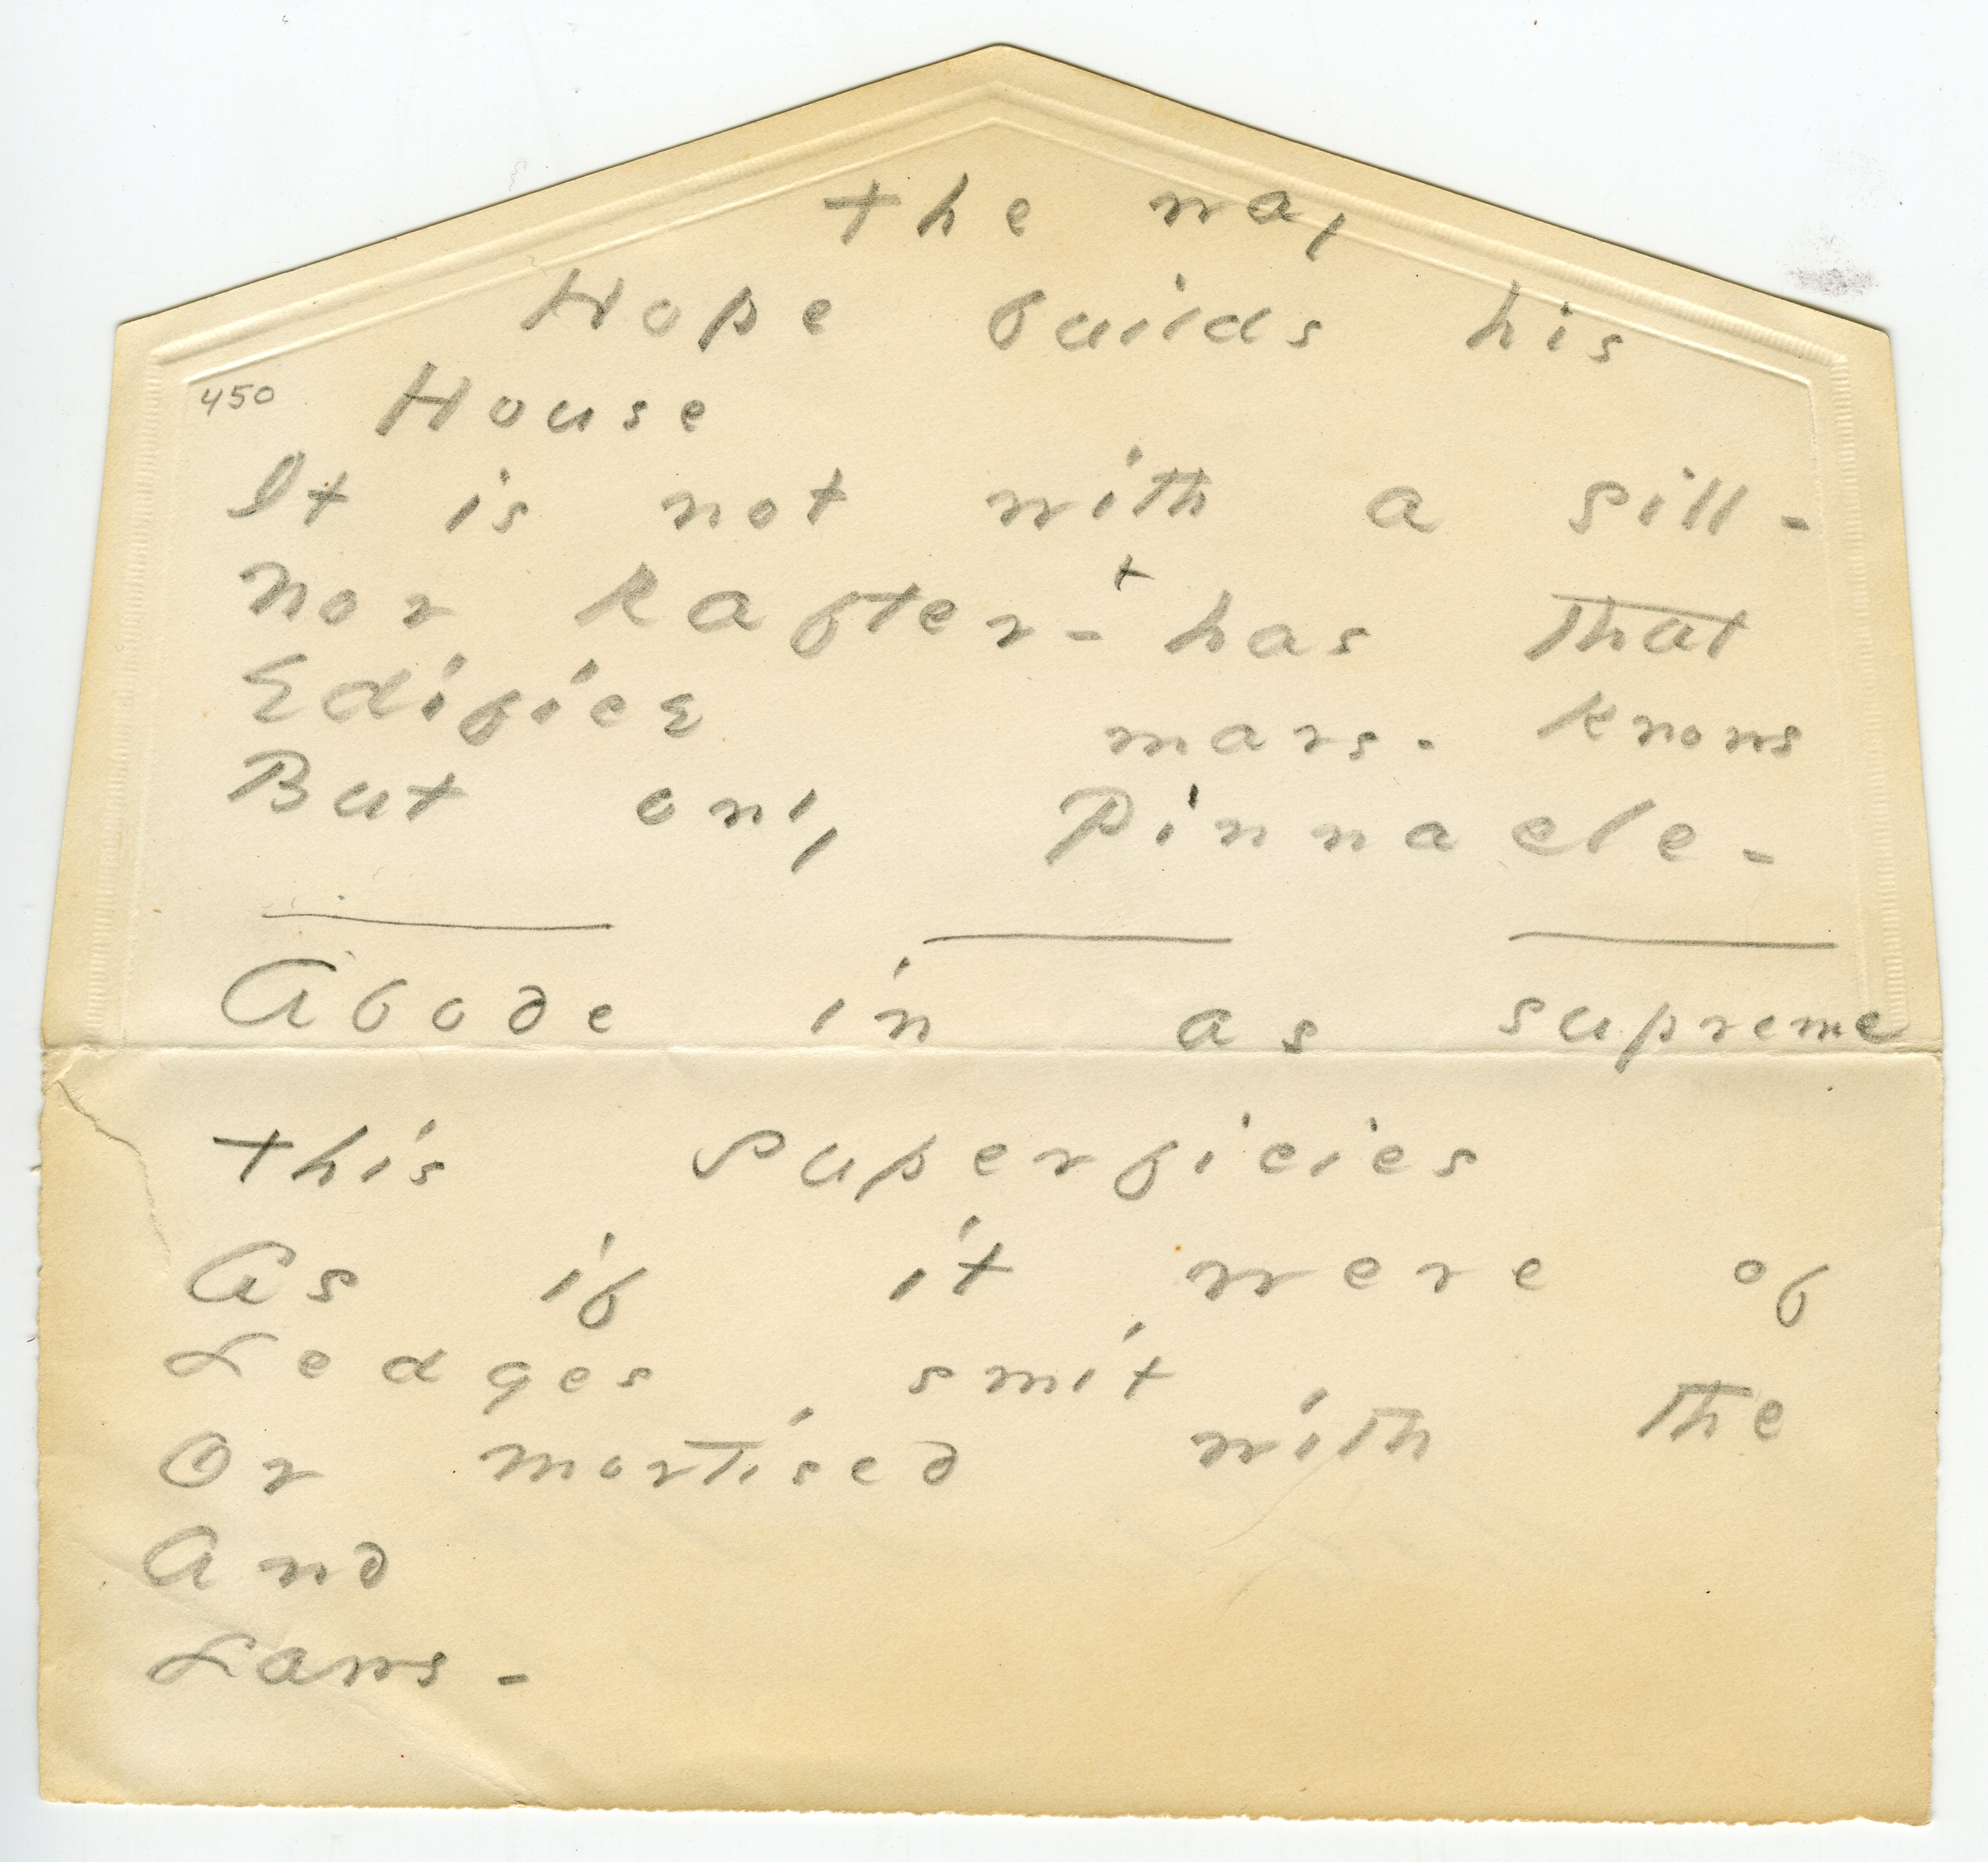 The way
Hope builds his
450
House
It is not with a sill -
Nor Rafter - + has that
Edifice mars - knows
But only Pinnacle -
Abode in as supreme
This Superficies
As if it were of
Ledges smit
Or mortised with the
And
Laws -